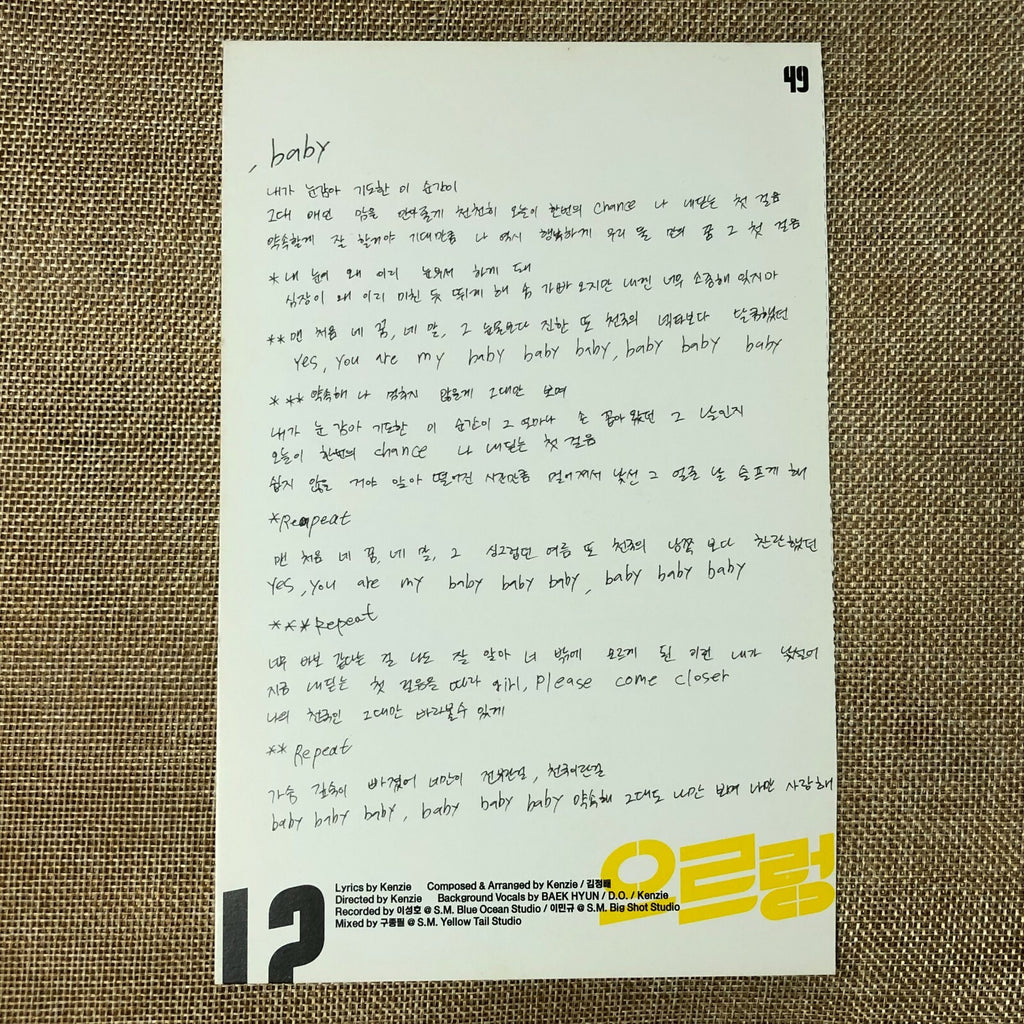 49
, baby
내가 눈감아 기도한 이 순간이
그대 매인 맘을 만져줄게 천천히 오늘이 한번의 chance 나 내딛는 첫 걸음
약속할게 잘 할거야 기대만큼 나 역시 행복하게 우리 둘 만의 꿈 그 첫 걸음
*내 눈에 왜 이리 눈부셔 하게 돼
심장이 왜 이리 미친 듯 뛰게 해 숨 가빠 오지만 내겐 너무 소중해 있지마
**맨 처음 네 꿈, 네 말, 그 눈으로보다 진한 또 천국의 넥타보다 달콤했던
Yes, You are my baby baby baby, baby baby baby
***약속해 나 멈추지 않을게 그대만 보며
내가 눈 감아 기도한 이 순간이 그 얼마나 손 꼽아 왔던 그 날인지
오늘이 한번의 chance 나 내딛는 첫 걸음
쉽지 않을 거야 알아 떨어진 시간만큼 멀어져서 낯선 그 얼굴 날 슬프게 해
*Repeat
맨 처음 네 꿈, 네 말, 그 싱그럽던 여름 또 천국의 남쪽 보다 찬란했던
Yes, You are my baby baby baby, baby baby baby
***Repeat
너무 바보 같다는 걸 나도 잘 알아 너 밖에 모르게 된 이런 내가 낯설어
지금 내딛는 첫 걸음을 따라 girl, please come closer
나의 천국인 그대만 바라볼수 있게
** Repeat
가슴 깊숙이 빠졌어 너만이 전부란걸, 천국이란걸
baby baby baby, baby baby baby 약속해 그대도 나만 보며 나만 사랑해
으르렁
12
Lyrics by Kenzie Composed & Arranged by Kenzie / 김정배
Directed by Kenzie Background Vocals by BAEK HYUN / D.O. / Kenzie
Recorded by 이성호 @ S.M. Blue Ocean Studio / 이민규 @ S.M. Big Shot Studio
Mixed by 구종필 @ S.M. Yellow Tail Studio